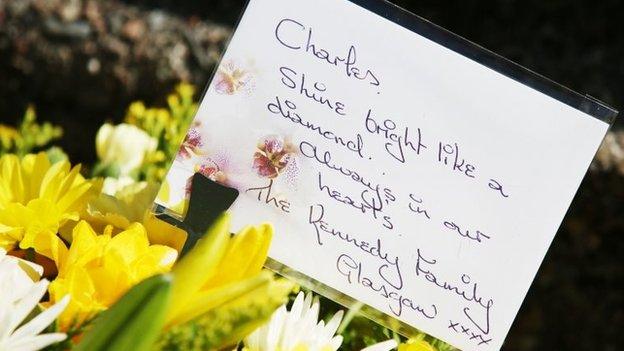 Charles.
Shine bright like a
diamond..
always in our
hearts.
The Kennedy Family
Glasgow xxxx